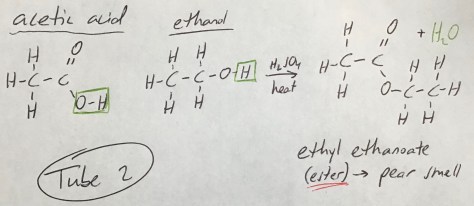 acetic acid
H
O
H-C-C
H
O-H
ethanol
H H
H-C-C-O-H
H H
H₂SO₄
heat
H
O
H-C-C
H
O-C-C-H
H H
H H
+ H₂O
Tube 2
ethyl ethanoate
(ester) → pear smell